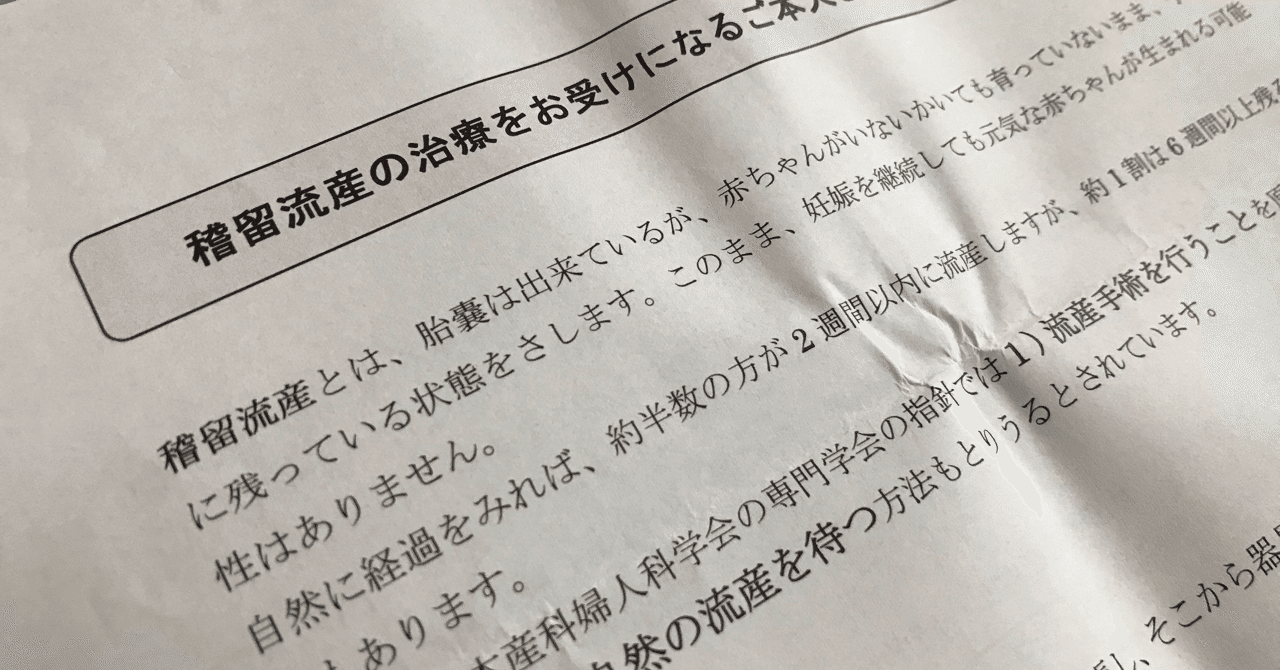 稽留流産の治療をお受けになるご本人
稽留流産とは、胎嚢は出来ているが、赤ちゃんがいないかいても育っていないまま、
に残っている状態をさします。このまま、妊娠を継続しても元気な赤ちゃんが生まれる可能
性はありません。
自然に経過をみれば、約半数の方が2週間以内に流産しますが、約1割は6週間以上残
あります。
産科婦人科学会の専門学会の指針では1）流産手術を行うことを
自然の流産を待つ方法もとりうるとされています。
し、そこから器